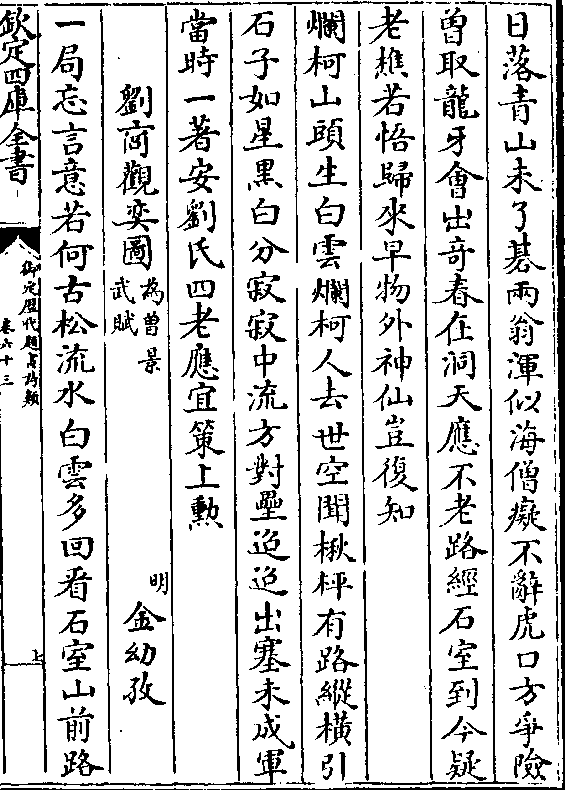 日落青山未了碁兩翁渾似海僧癡不辭虎口方爭險
曾取龍牙會出奇春在洞天應不老路經石室到今疑
老樵若悟歸來早物外神仙豈復知
爛柯山頭生白雲爛柯人去世空聞楸枰有路縱橫引
石子如星黑白分寂寂中流方對壘迢迢出塞未成軍
當時一著安劉氏四老應宜策上勲
劉商觀奕圖為曽景武賦
明金幼孜
一局忘言意若何古松流水白雲多回看石室山前路
欽定四庫全書
御定歴代題畫詩類
卷六十三